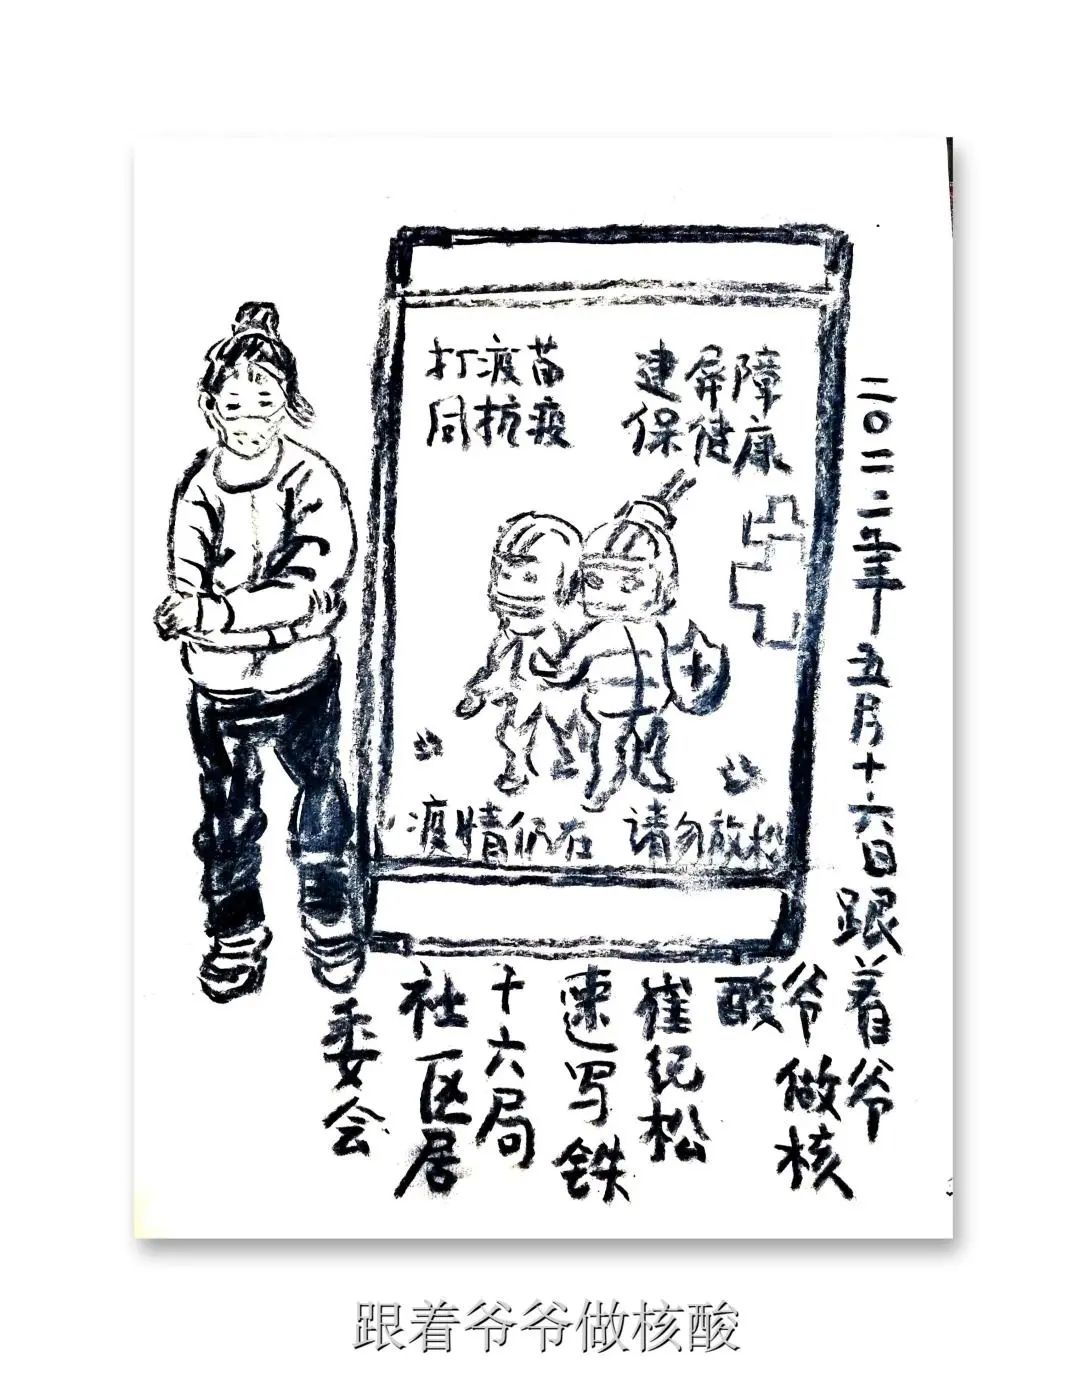 打疫苗 建屏障
同抗疫 保健康
疫情仍在 请勿放松
二〇二二年五月十六日跟着爷
爷做核
酸
崔纪松
速写铁
十六局
社区居
委会
跟着爷爷做核酸